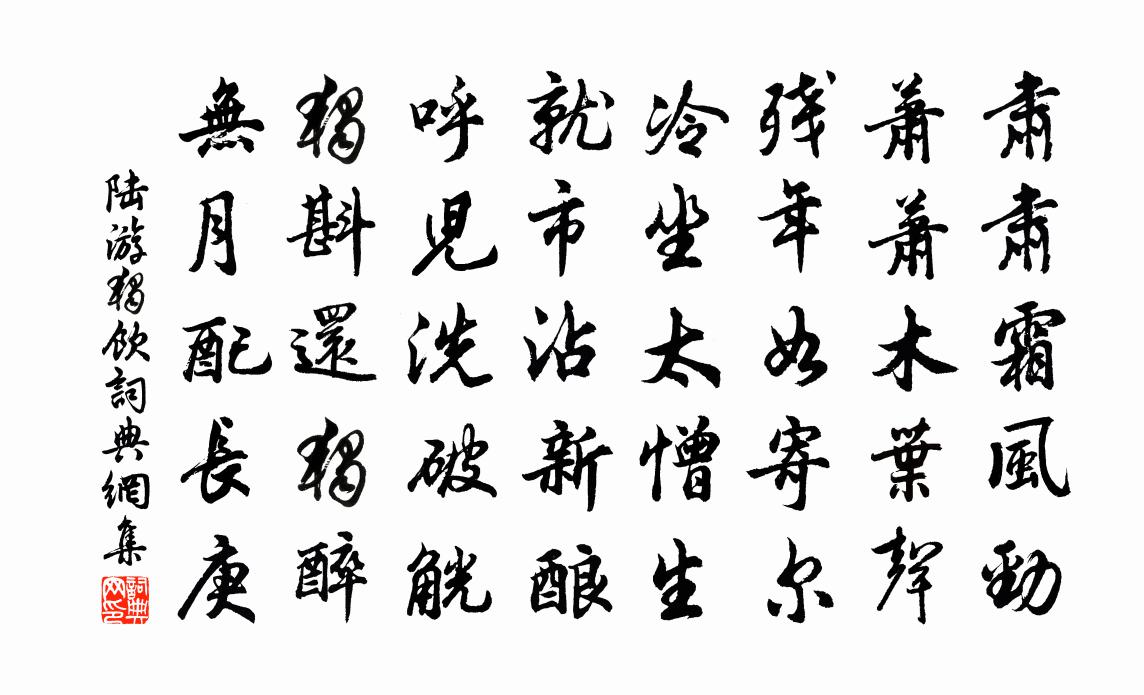 肅肅霜風勁
蕭蕭木葉聲
残年如寄尔
冷坐太憎生
就市沽新酿
呼児洗破觥
獨斟還獨醉
無月配長庚
陆游獨飲詞典網集
詞典网印